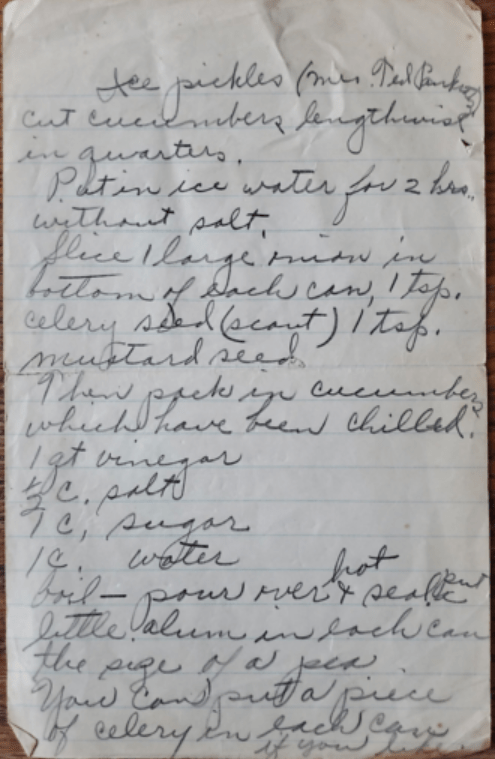 Ice pickles (Mrs. Ted Parkers)
cut cucumbers lengthwise
in quarters.
Put in ice water for 2 hrs.
without salt.
Slice 1 large onion in
bottom of each can, 1 tsp.
celery seed (scant) 1 tsp.
mustard seed.
Then pack in cucumbers
which have been chilled.
1 qt vinegar
1/2 c. salt
1 c, sugar
1 c. water
boil — pour over hot & seal. put
little alum in each can
the size of a pea.
You can put a piece
of celery in each can
if you like.